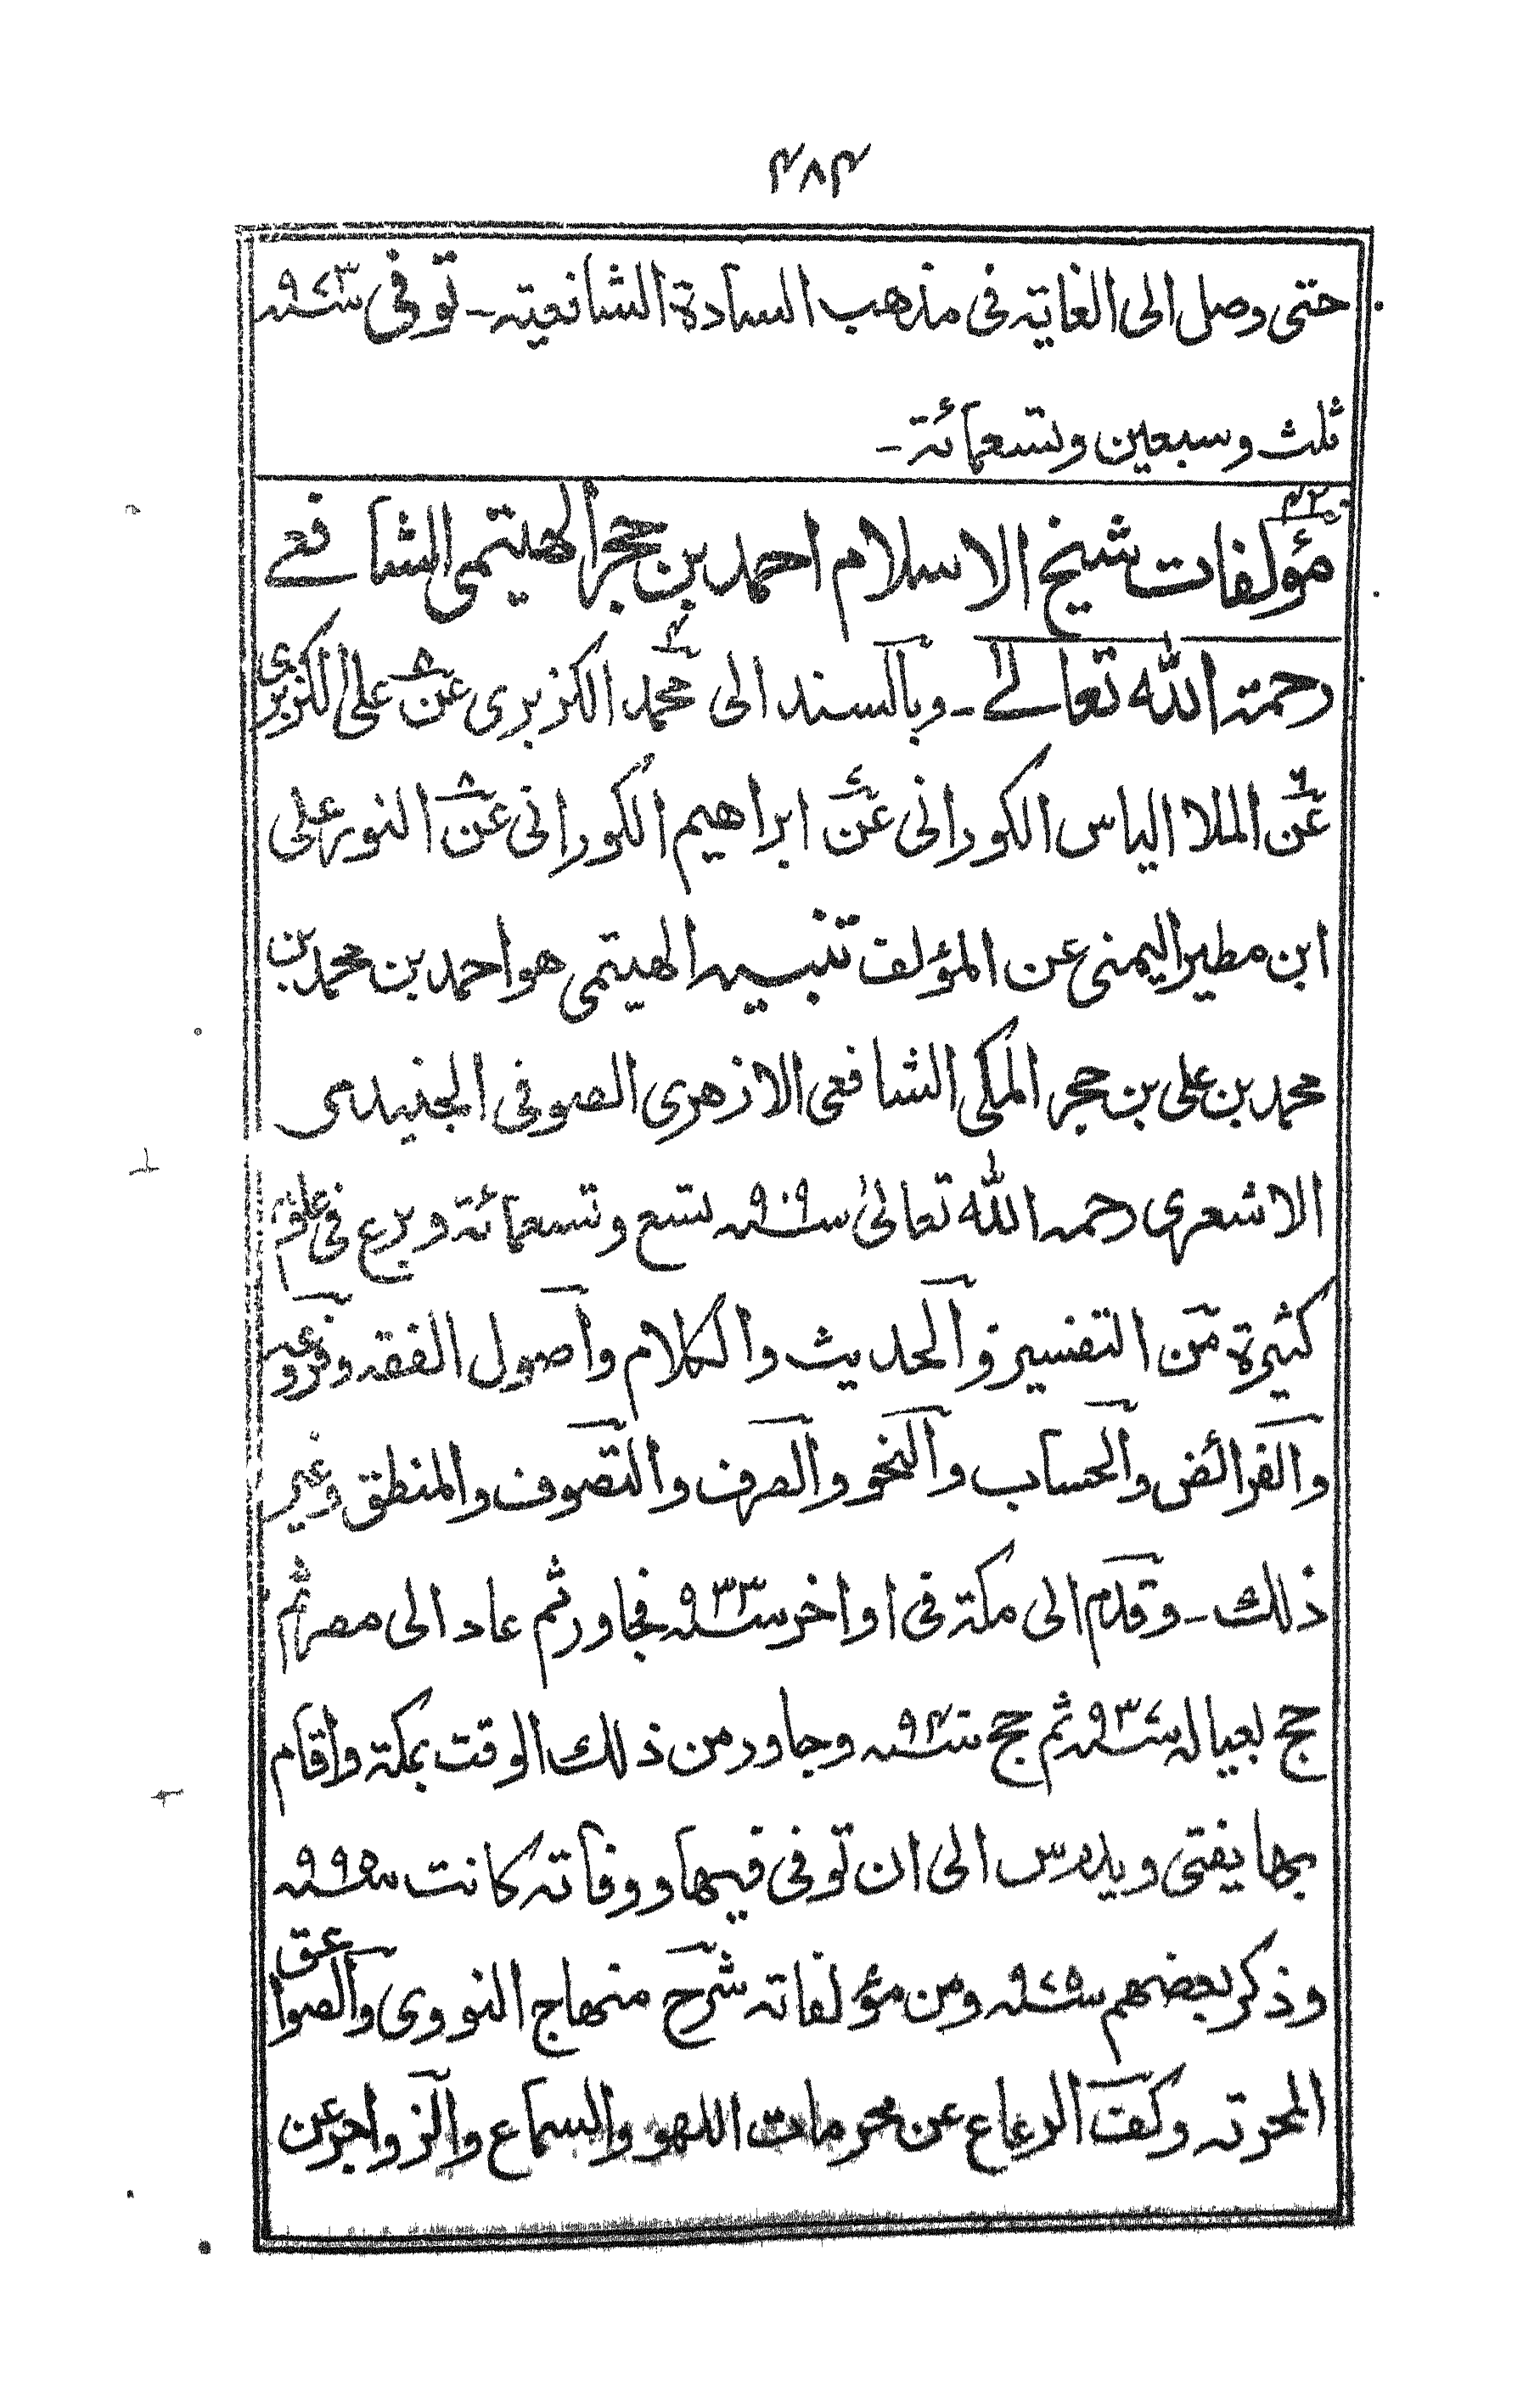 ۴۸۴
حتى وصل الى الغاية فى مذهب السادة الشافعية ـ توفى سنة ۹۷۳
ثلث وسبعين وتسعمائة ـ
مؤلفات شيخ الاسلام احمد بن حجر الهيتمى الشافعى
رحمة الله تعالے ـ وبالسند الى محمد الكزبرى عن على الكزبرى
عن الملا الياس الكورانى عن ابراهيم الكورانى عن النور على
ابن مطير اليمنى عن المؤلف تنبيه الهيتمى هو احمد بن محمد بن
محمد بن على بن حجر المكى الشافعى الازهرى الصوفى الجنيدى
الاشعرى رحمه الله تعالىٰ سنة ۹۰۹ تسع وتسعمائة وبرع فى علوم
كثيرة من التفسير و الحديث والكلام واصول الفقه وفروعه
والفرائض والحساب والنحو والصرف والتصوف والمنطق وغير
ذلك ـ وقدم الى مكة فى اواخر سنة ۹۳۳ فجاور ثم عاد الى مصر ثم
حج بعياله سنة ۹۳۷ ثم حج سنة ۹۴ وجاور من ذلك الوقت بمكة واقام
بها يفتى ويدرس الى ان توفى فيها ووفاته كانت سنة ۹۹۵
وذكر بعضهم سنة ۹۷۵ ومن مؤلفاته شرح منهاج النووى والصواعق
المحرقه وكف الرعاع عن محرمات اللهو والسماع والزواجر عن